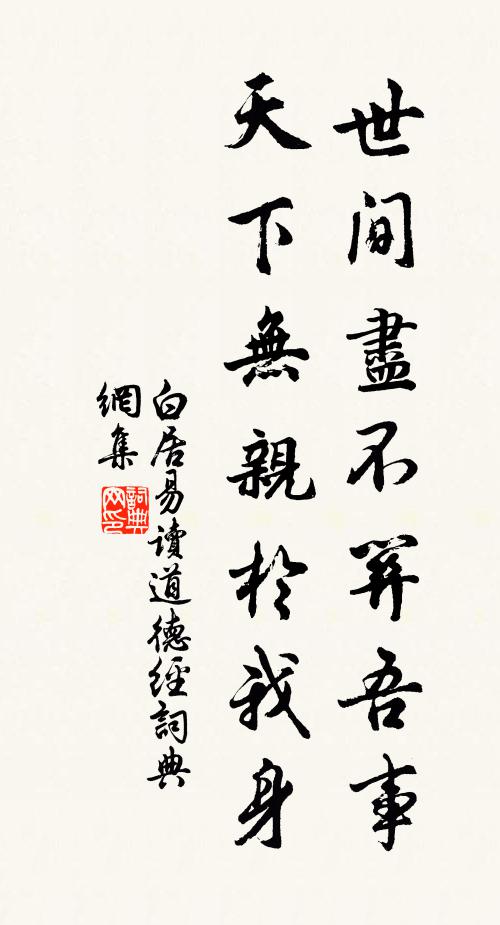 世間盡不關吾事
天下無親於我身
白居易讀道德經詞典
網集
詞典
网印